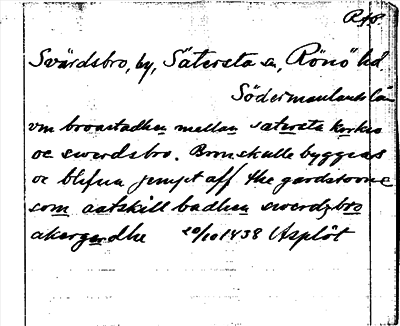 Rtb.
Svärdsbro, by, Sätersta sn, Rönö hd
Södermanlands län
vm broastadhen mellan sætersta kirkio
oc swerdsbro. Bron skulle byggias
oc blifua jempt aff the gardstoone
som aatskill badhen swerdzbro
akergerdhe 20/10 1438 Asplöt